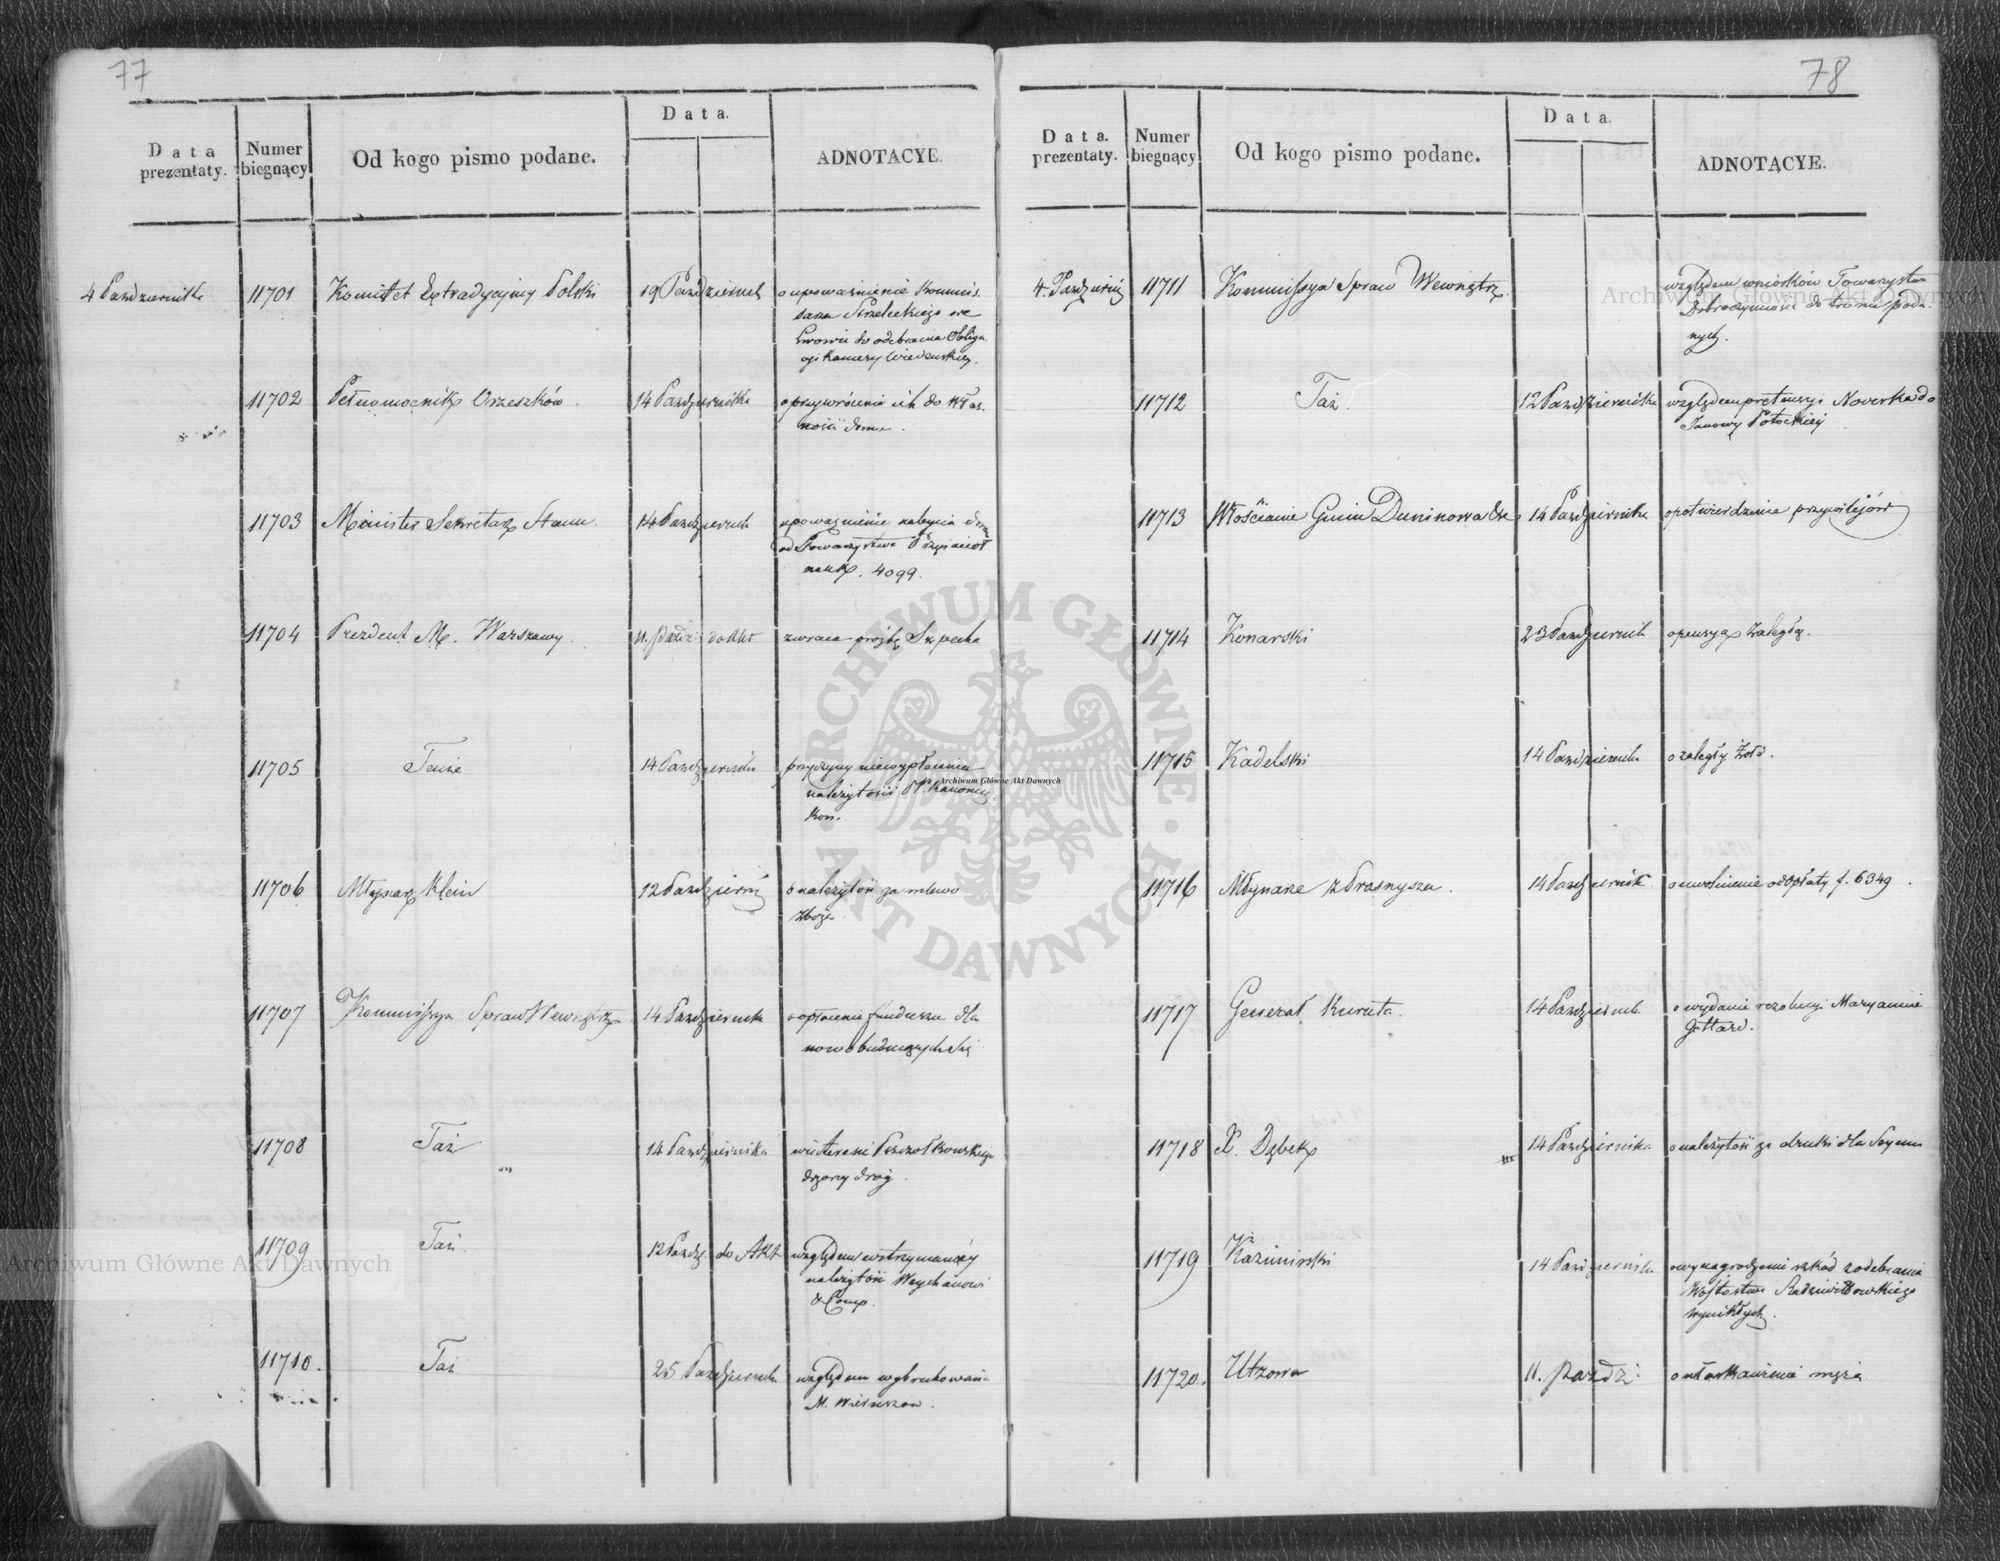 77
Data prezentaty.
Numer biegnący
Od kogo pismo podane.
Data.
ADNOTACYE.
4 Października
11701
Komitet Extradycyiny Polski
19 Październik
o upoważnienie Kommis.
sarza Strzeleckiego we
Lwowie do odebrania Obliga
cyi Kamery Wiedeńskiey.
11702
Pełnomocnik Orzeszków.
14 Października
o przywrócenie ich do Włas.
ności domu.
11703
Minister Sekretarz Stanu.
14 Październik
upoważnienie nabycia domu
od Towarzystwa Przyiaciół
nauk. 4099.
11704
Prezdent M. Warszawy.
11. Paźdz: do Akt
zwraca prośbę Szpecha
11705
Tenże
14 Październik
przyczyny niewypłacenia
należytości
kon.
11706
Młynarz Klein
12 Paździer
o należytość za mlewo
zboża
11707
Kommissya Spraw Wewnętrz
14 Października
o opłacenie funduszu dla
nowobuduiących się
11708
Taż
14 Października
w interesie Pszczołkowskiego
dozorcy dróg.
11709
Taż
12 Paźdz. do Akt
względem wstrzymaney
należytości Weychanowi
& Comp.
11710.
Taż
25 Październik
względem wybrukowania
M. Wieruszow.
78
Data. prezentaty.
Numer biegnący
Od kogo pismo podane.
Data.
ADNOTACYE.
4. Paździer
11711
Kommissya Spraw Wewnętrz.
względem wniosków Towarzystwa
Dobroczynności do tronu poda.
nych.
11712
Taż.
12 Października
względem pretensyi Noverka do
Janowey Potockiéy
11713
Włościanie Gmin Duninowa &c
14 Października
o potwierdzenie przywilejów
11714
Konarski
23 Październik
o pensyą zaległą.
11715
Kadelski
14 Październik
o zaległy żołd.
11716
Młynarze z Prasnysza.
14 Październik
o uwolnienie od opłaty f. 6349.
11717
Generał Kuruta.
14 Październik
o wydanie rezolucyi Maryannie
Gettard.
11718
X. Dąbek
14 Października
o należytość za druki dla Seymu
11719
Kazimirski
14 Październik
o wynagrodzenie szkód z odebrania
Wójtostwa Radziwiłłowskiego
wynikłych.
11720.
Utzowa
11. Paźdź:
o ułaskawienie męża
Archiwum Główne Akt Dawnych
ARCHIWUM GŁÓWNE
AKT DAWNYCH
Archiwum Główne Akt Dawnych
Archiwum Główne Akt Dawnych